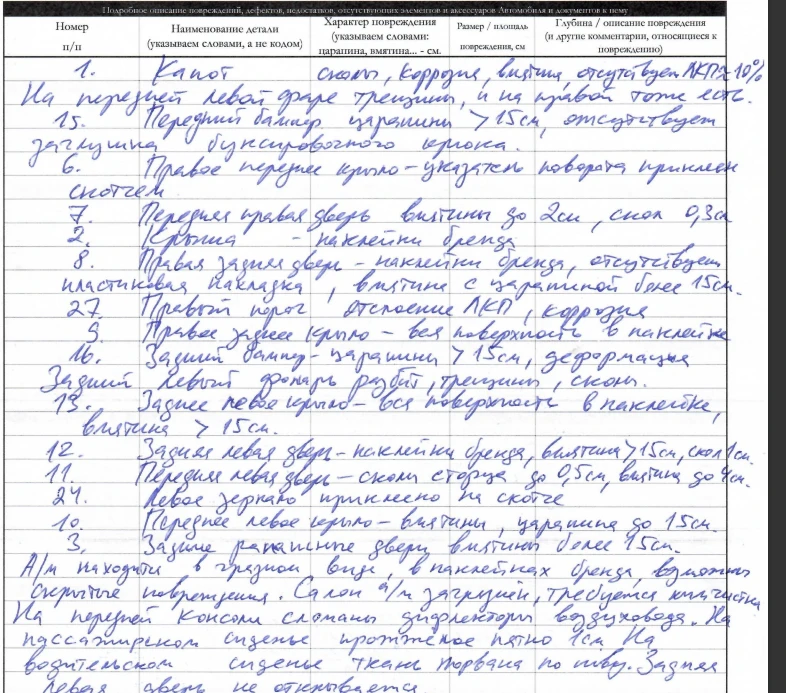 Подробное описание повреждений, дефектов, недостатков, отсутствующих элементов и аксессуаров Автомобиля и документов к нему
Номер п/п | Наименование детали (указываем словами, а не кодом) | Характер повреждения (указываем словами: царапина, вмятина... - см. | Размер / площадь повреждения, см | Глубина / описание повреждения (и другие комментарии, относящиеся к повреждению)
1. Капот сколы, коррозия, вмятина, отсутствует ЛКП ≈ 10%
На передней левой фаре трещины, и на правой тоже есть.
15. Передний бампер царапины > 15см, отсутствует
заглушка буксировочного крюка.
6. Правое переднее крыло - указатель поворота приклеен
скотчем
7. Передняя правая дверь вмятины до 2см, скол 0,3см
2. Крыша - наклейки бренда
8. Правая задняя дверь - наклейки бренда, отсутствует
пластиковая накладка, вмятина с царапиной более 15см.
27. Правый порог отслоение ЛКП, коррозия
9. Правое заднее крыло - вся поверхность в наклейке
16. Задний бампер - царапины > 15см, деформация
Задний левый фонарь разбит, трещины, сколы.
13. Заднее левое крыло - вся поверхность в наклейке,
вмятина > 15см.
12. Задняя левая дверь - наклейки бренда, вмятина > 15см, скол 1см.
11. Передняя левая дверь - сколы с торца до 0,5см, вмятина до 4см.
24. Левое зеркало приклеено на скотче
10. Переднее левое крыло - вмятины, царапина до 15см.
3. Задние распашные двери вмятины более 15см.
А/м находится в грязном виде, в наклейках бренда, возможны
скрытые повреждения. Салон а/м загрязнён, требуется химчистка
На передней консоли сломаны дифлекторы воздуховода. На
пассажирском сиденье прожжёное пятно 1см. На
водительском сиденье ткань порвана по шву. Задняя
левая дверь не открывается.